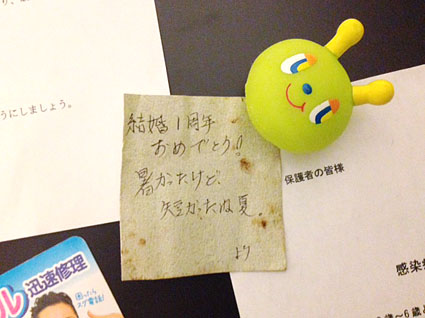 うにしましょう。
結婚1周年
おめでとう!!
暑かったけど、
短かったね夏。
より
保護者の皆様
感染
迅速修理
ル
困ったら
スグ電話!